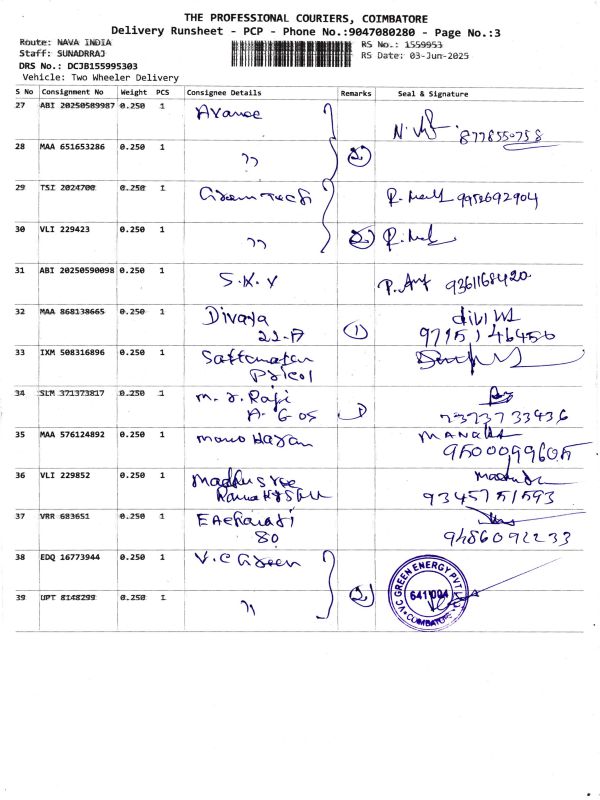 THE PROFESSIONAL COURIERS, COIMBATORE
Delivery Runsheet - PCP - Phone No.:9047080280 - Page No.:3
Route: NAVA INDIA
Staff: SUNADRRAJ
DRS No.: DCJB155995303
Vehicle: Two Wheeler Delivery
RS No.: 1559953
RS Date: 03-Jun-2025
S No Consignment No Weight PCS Consignee Details Remarks Seal & Signature
27 ABI 20250589987 0.250 1 8778550758
28 MAA 651653286 0.250 1 " 2
29 TSI 2024700 0.250 1 Green Tech 9952692904
30 VLI 229423 0.250 1 " 2
31 ABI 20250590098 0.250 1 S.K.V 9361168420
32 MAA 868138665 0.250 1 Divaya 22-A 1 9715146456
33 IXM 508316896 0.250 1
34 SLM 371373817 0.250 1 1 7373733436
35 MAA 576124892 0.250 1 9500099605
36 VLI 229852 0.250 1 9345751593
37 VRR 683651 0.250 1 80 9486092233
38 EDQ 16773944 0.250 1 V.C Green
39 UPT 8148299 0.250 1 " 2
V.C GREEN ENERGY PVT LTD
641 004
COIMBATORE